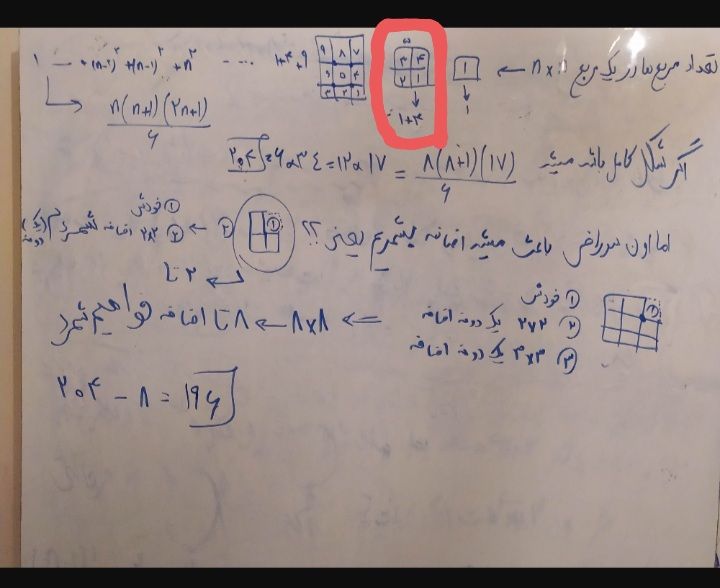 تعداد مربع ها در یک مربع n×n ← ۱ ۱+۴ ۱+۴+۹ .... ۱ ... +(n-۱)²+(n-۱)²+n²
n(n+1)(2n+1)
۶
اگر شکل کامل باشد میشه ۸(۸+۱)(۱۷) = ۱۲×۱۷ = ۶×۳۴ = ۲۰۴
۶
اما اون سوراخی باعث میشه اضافه بشمریم یعنی ؟؟ ① ② ←
① خودش
② ۲×۲ اضافه شمردیم (یک دونه)
↲ ۲ تا
①
① خودش
② ۲×۲ یک دونه اضافه
③ ۳×۳ یک دونه اضافه
⇒ ۸×۸ ← ۸ تا اضافه خواهیم شمرد
۲۰۴ - ۸ = ۱۹۶